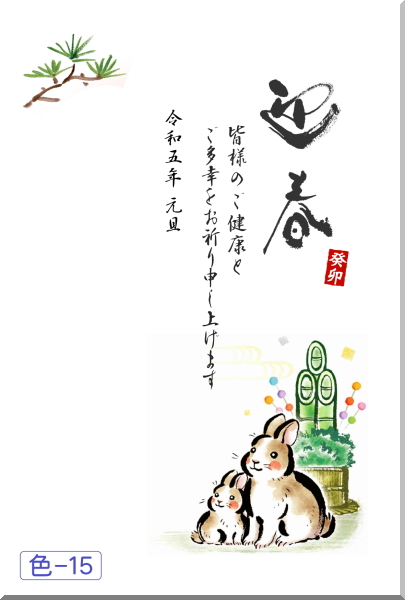 迎春
癸卯
皆様のご健康と
ご多幸をお祈り申し上げます
令和五年 元旦
色-15